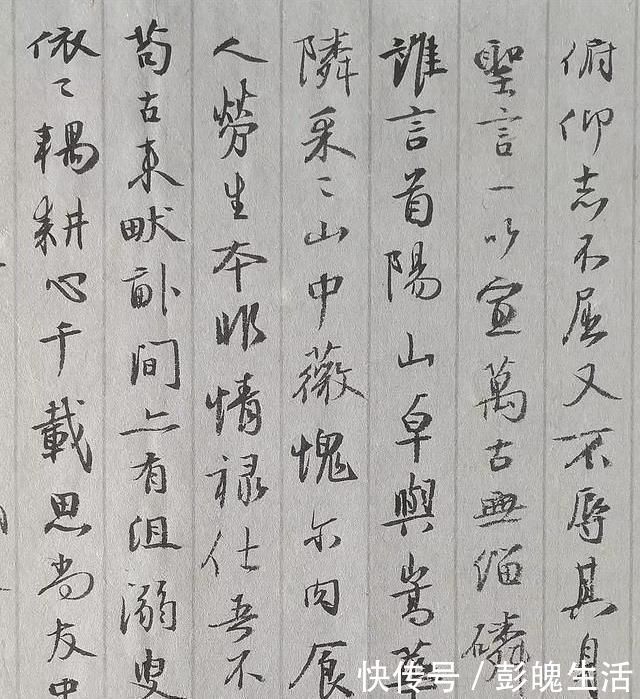 俯仰志不屈又不辱其身
聖言一以宣萬古無緇磷
誰言首陽山卓與嵩華
隣采〻山中薇愧尔肉食
人勞生本非情祿仕吾不
苟古來畎畝间亦有沮溺叟
依〻耦耕心千載思尚友中
快传号/彭魄生活